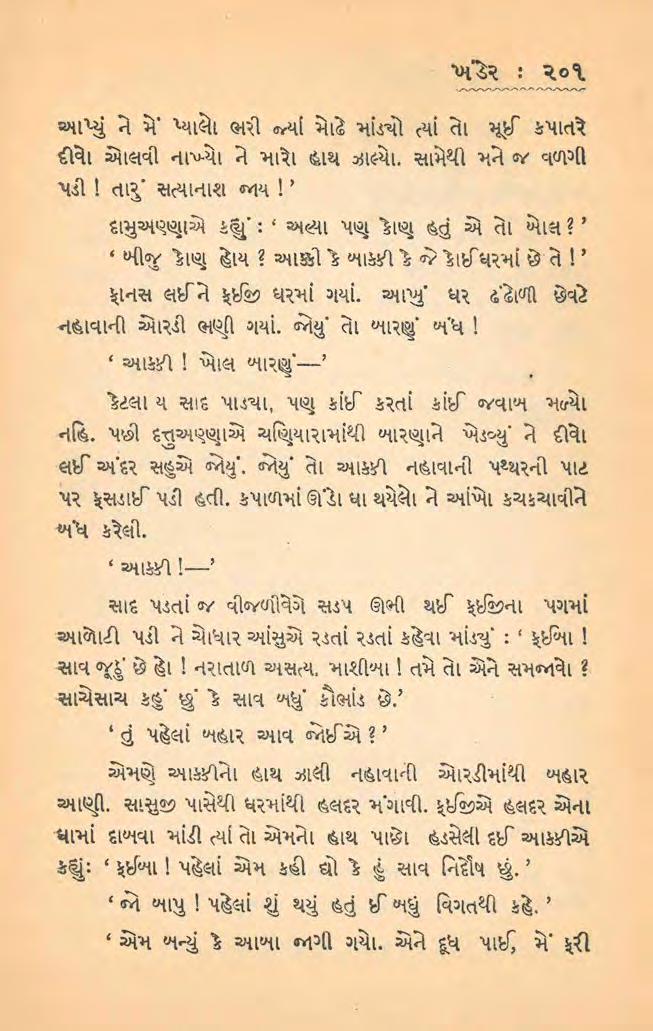 ખંડેર : ૨૦૧
આપ્યું ને મેં પ્યાલો ભરી જ્યાં મોઢે માંડ્યો ત્યાં તો મૂઈ કપાતરે
દીવો ઓલવી નાખ્યો ને મારો હાથ ઝાલ્યો. સામેથી મને જ વળગી
પડી ! તારું સત્યાનાશ જાય !’
દામુઅણ્ણાએ કહ્યું : ‘ અલ્યા પણ કોણ હતું એ તો બોલ ? ’
‘ બીજુ કોણ હોય ? આક્કી કે બાક્કી કે જે કોઈ ઘરમાં છે તે ! ’
ફાનસ લઈને ફઈજી ઘરમાં ગયાં. આખું ઘર ઢંઢોળી છેવટે
નહાવાની ઓરડી ભણી ગયાં. જોયું તો બારણું બંધ !
‘ આક્કી ! ખોલ બારણું—’
કેટલા ય સાદ પાડ્યા, પણ કાંઈ કરતાં કાંઈ જવાબ મળ્યો
નહિ. પછી દત્તુઅણ્ણાએ ચણિયારામાંથી બારણાને ખેડવ્યું ને દીવો
લઈ અંદર સહુએ જોયું. જોયું તો આક્કી નહાવાની પથ્થરની પાટ
પર ફસડાઈ પડી હતી. કપાળમાં ઊંડો ઘા થયેલો ને આંખો કચકચાવીને
બંધ કરેલી.
‘ આક્કી !—’
સાદ પડતાં જ વીજળીવેગે સડપ ઊભી થઈ ફઈજીના પગમાં
આળોટી પડી ને ચોધાર આંસુએ રડતાં રડતાં કહેવા માંડ્યું : ‘ ફઈબા !
સાવ જૂઠું છે હો ! નરાતાળ અસત્ય. માશીબા ! તમે તો એને સમજાવો ?
સાચેસાચ કહું છું કે સાવ બધું કૌભાંડ છે.’
‘ તું પહેલાં બહાર આવ જોઈએ ? ’
એમણે આક્કીનો હાથ ઝાલી નહાવાની ઓરડીમાંથી બહાર
આણી. સાસુજી પાસેથી ઘરમાંથી હલદર મંગાવી. ફઈજીએ હલદર એના
ઘામાં દાબવા માંડી ત્યાં તો એમનો હાથ પાછો હડસેલી દઈ આક્કીએ
કહ્યું: ‘ ફઈબા ! પહેલાં એમ કહી દ્યો કે હું સાવ નિર્દોષ છું. ’
‘ જો બાપુ ! પહેલાં શું થયું હતું ઈ બધું વિગતથી કહે. ’
‘ એમ બન્યું કે આબા જાગી ગયો. એને દૂધ પાઈ, મેં ફરી